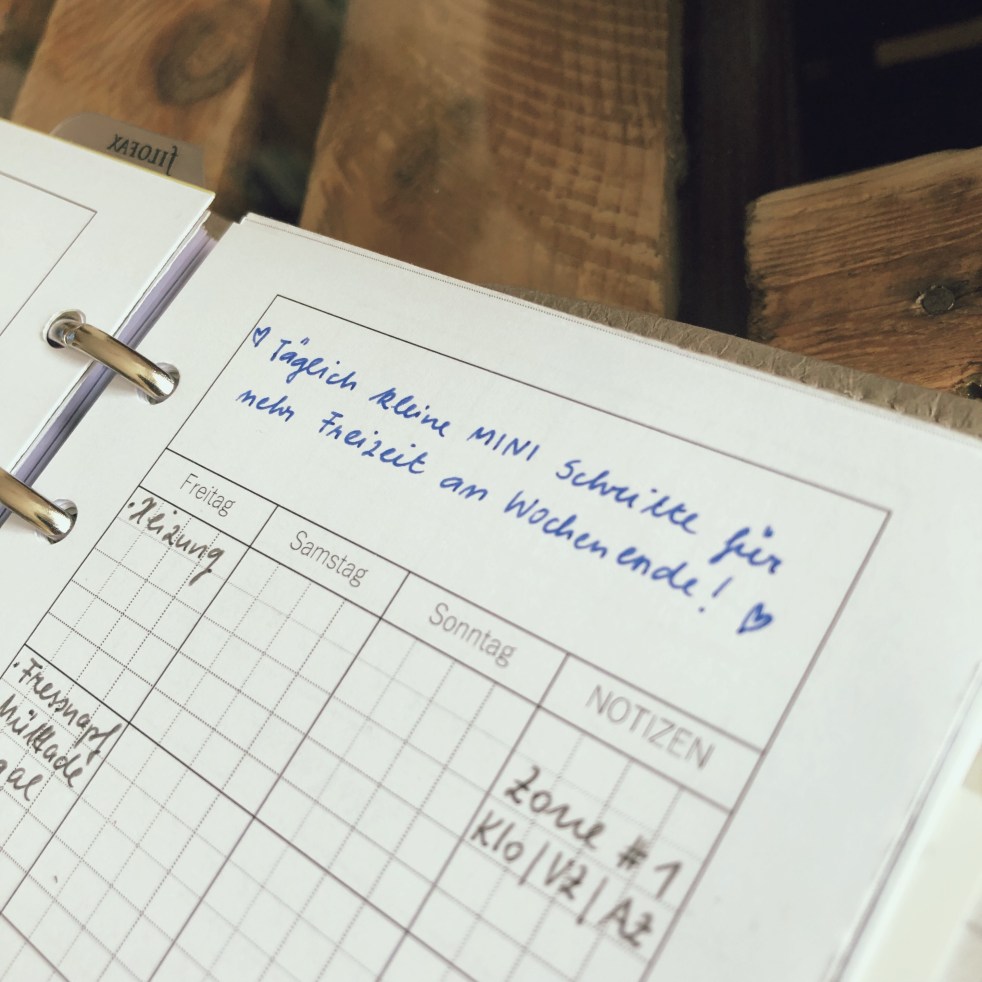 FILOFAX
♥ Täglich kleine MINI Schritte für
mehr Freizeit am Wochenende! ♥
Freitag
Samstag
Sonntag
NOTIZEN
• Heizung
• Fressnapf
Zone #1
Klo | VZ | AZ